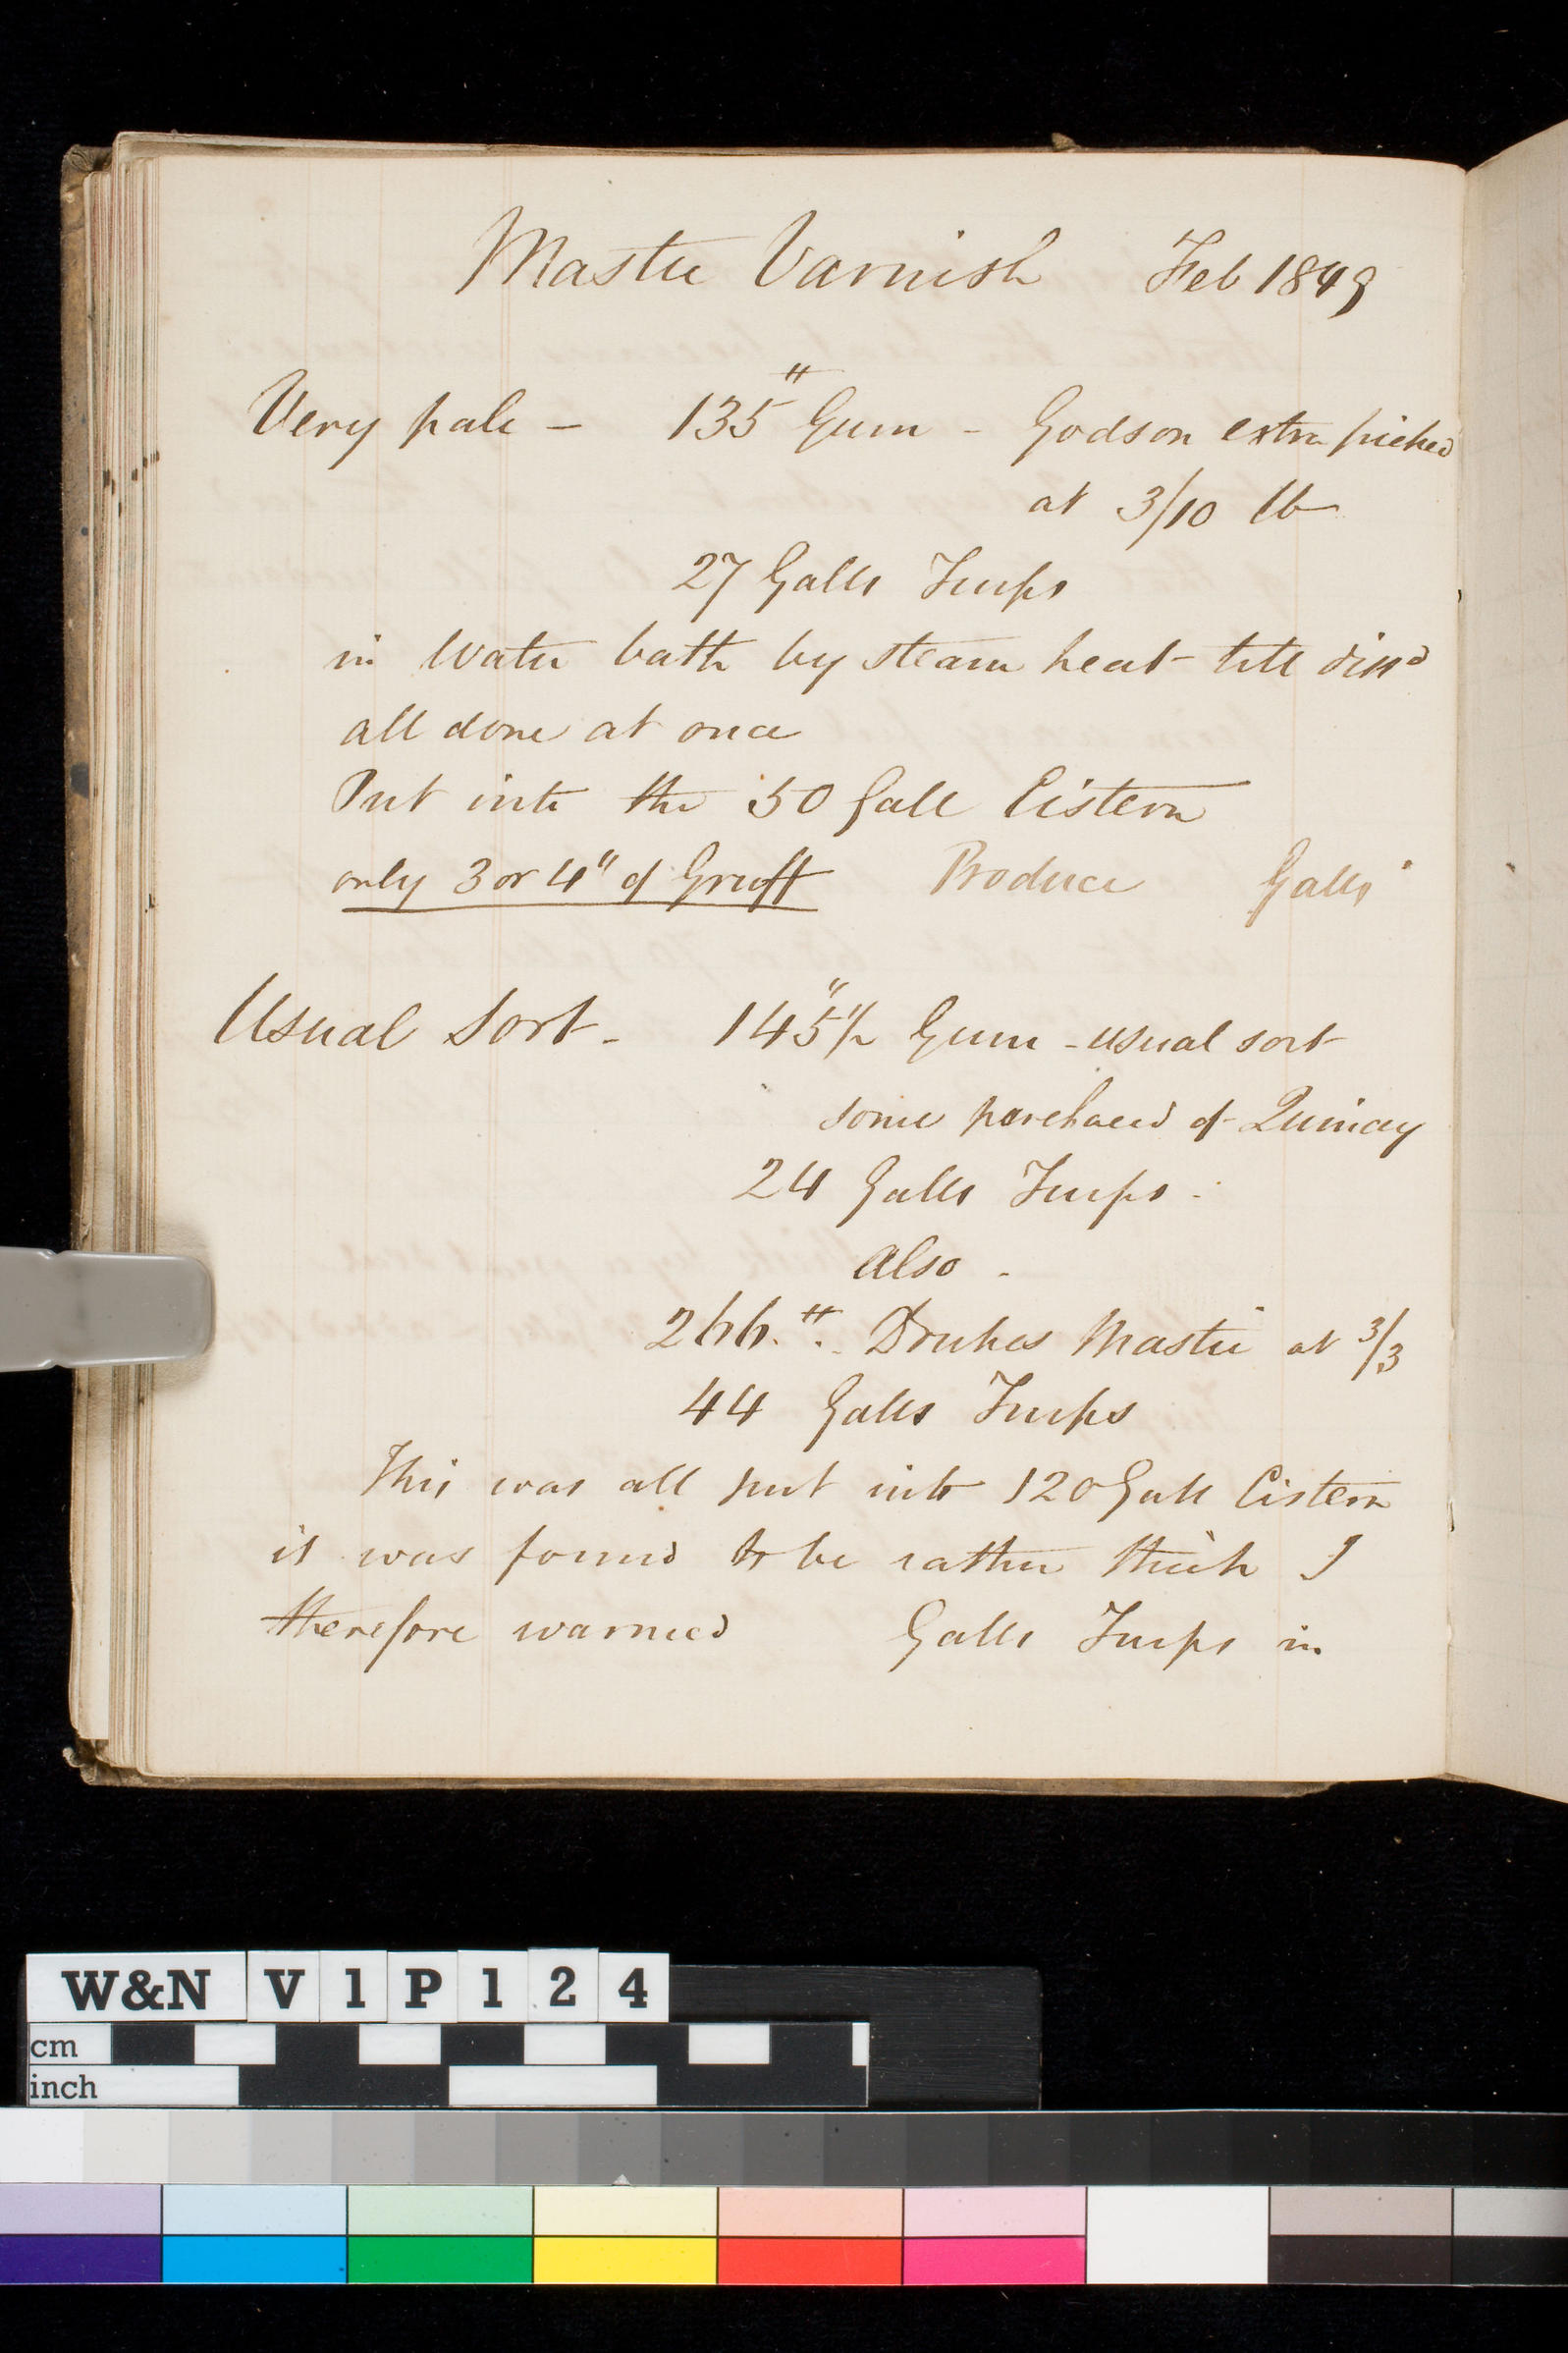 Mastic Varnish Feb 1849
Very pale - 135 " Gum - Godson extra picked
at 3/10 lb
27 Galls Turps
in Water bath by steam heat till dissd
all done at once
Put into the 50 Gall Cistern
only 3 or 4 " of Gruff Produce Galls
Usual Sort - 145 1/2 " Gum - usual sort
some purchased of Quincey
24 Galls Turps -
also -
266 " Mastic at 3/3
44 Galls Turps
This was all put into 120 Gall Cistern
it was found to be rather thick I
therefore warmed Galls Turps in
W&N V1P124
cm
inch